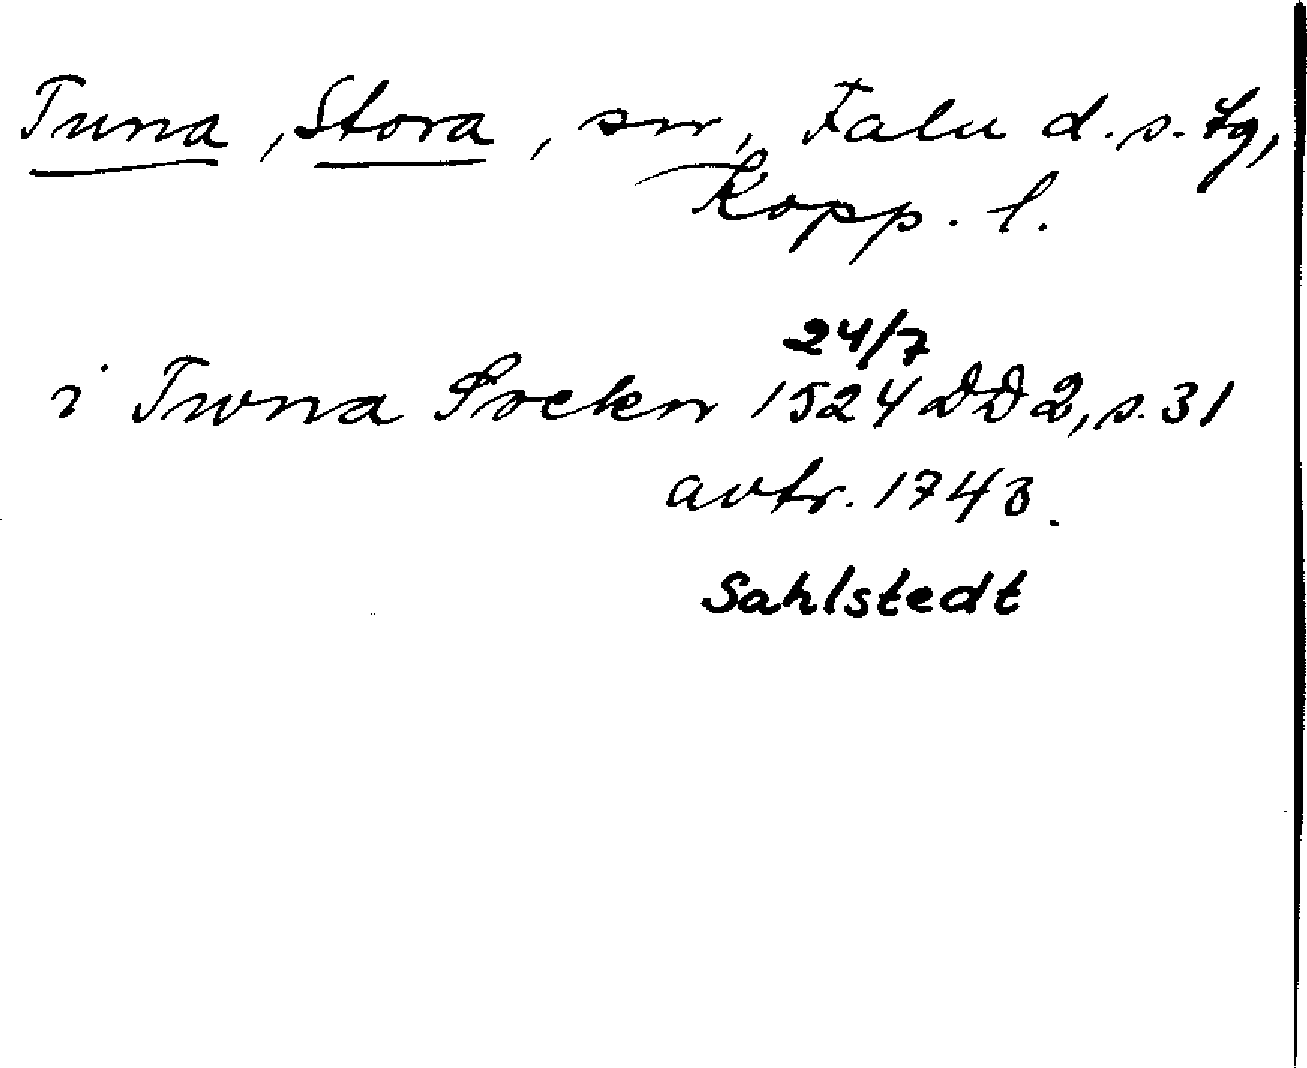 Tuna, Stora, sn, Falu d.s. tg,
Kopp. l.
24/7
i Twna Sockn 1524 DD 2, s. 31
avtr. 1743.
Sahlstedt